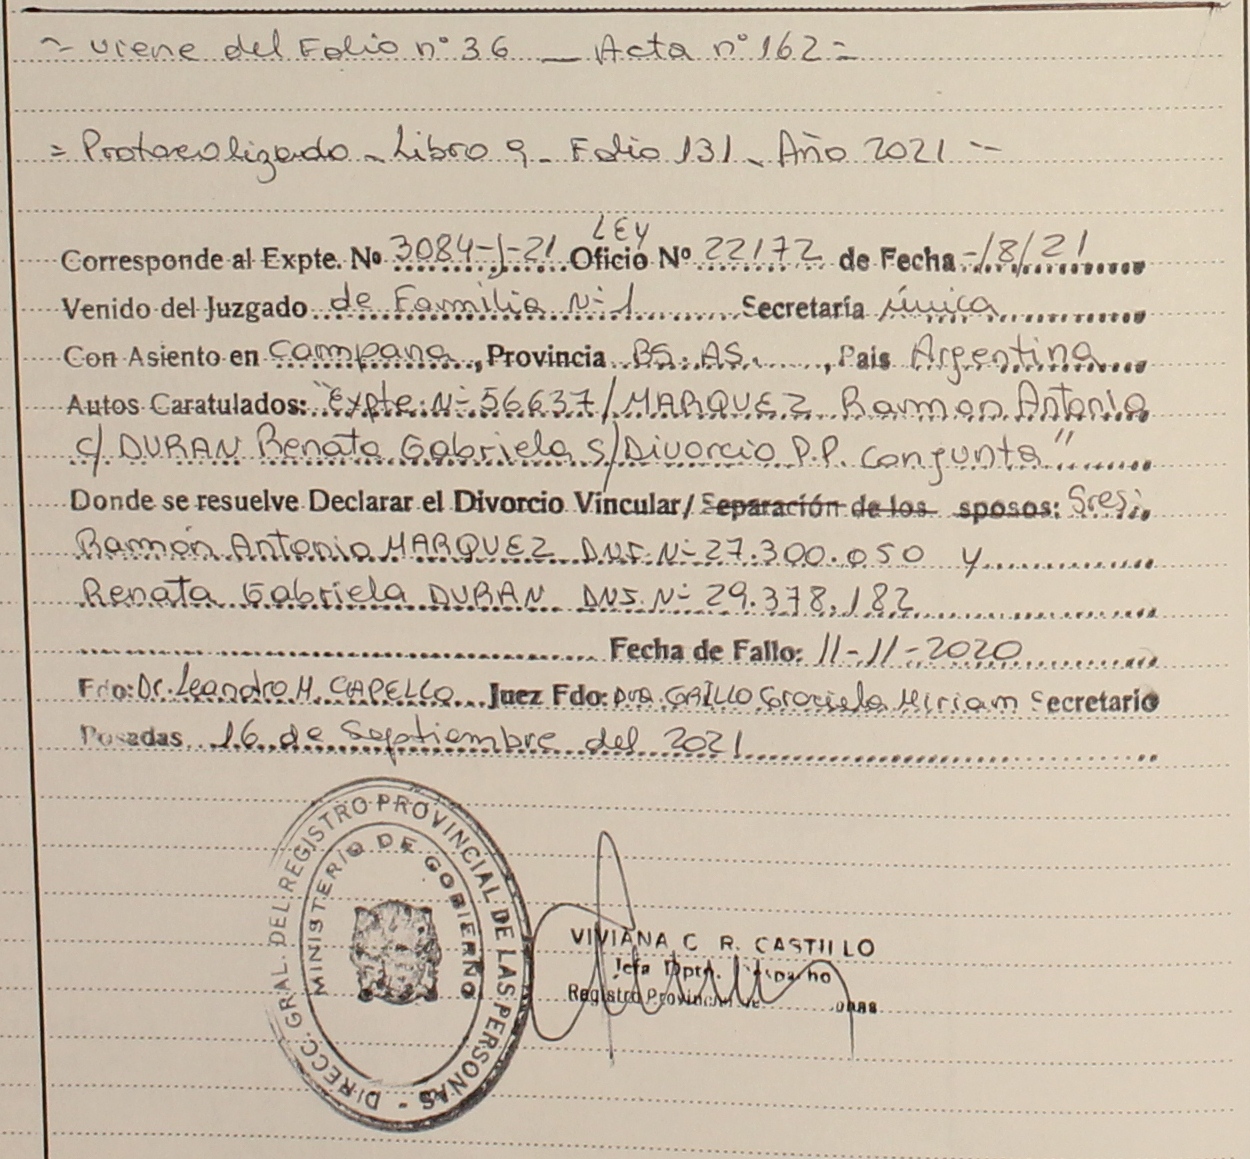 ~ viene del Folio n° 36 _ Acta n° 162 =
= Protocolizado - Libro 9 - Folio 131 - Año 2021 --
LEY
Corresponde al Expte. Nº 3084-J-21 Oficio Nº 22172 de Fecha -/8/21
Venido del Juzgado de Familia Nº 1 Secretaría única
Con Asiento en Campana, Provincia BS. AS., Pais Argentina
Autos Caratulados: "Expte. Nº 56637/MARQUEZ Ramon Antonio
c/ DURAN Renata Gabriela s/Divorcio P.P. Conjunta"
Donde se resuelve Declarar el Divorcio Vincular/ Separación de los sposos: Sres:
Ramón Antonio MARQUEZ DNI. Nº 27.300.050 y
Renata Gabriela DURAN DNI. Nº 29.378.182
Fecha de Fallo: 11-11-2020
Fdo: Dr. Leandro M. CAPELLO Juez Fdo: Dra. GRILLO Graciela Miriam Secretario
Posadas 16 de Septiembre del 2021
DIRECC. GRAL. DEL REGISTRO PROVINCIAL DE LAS PERSONAS -
MINISTERIO DE GOBIERNO
VIVIANA C R. CASTILLO
Jefa Dpto.
Registro Provincial de